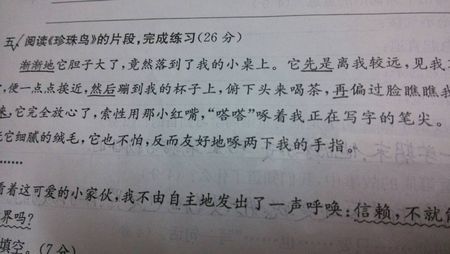 五、阅读《珍珠鸟》的片段,完成练习(26分)
渐渐地它胆子大了,竟然落到了我的小桌上。它先是离我较远,见我
,便一点点挨近,然后蹦到我的杯子上,俯下头来喝茶,再偏过脸瞧瞧我
,它完全放心了,索性用那小红嘴,“嗒嗒”啄着我正在写字的笔尖。
它细腻的绒毛,它也不怕,反而友好地啄两下我的手指。
……
着这可爱的小家伙,我不由自主地发出了一声呼唤:信赖,不就
界吗?
填空。(7分)